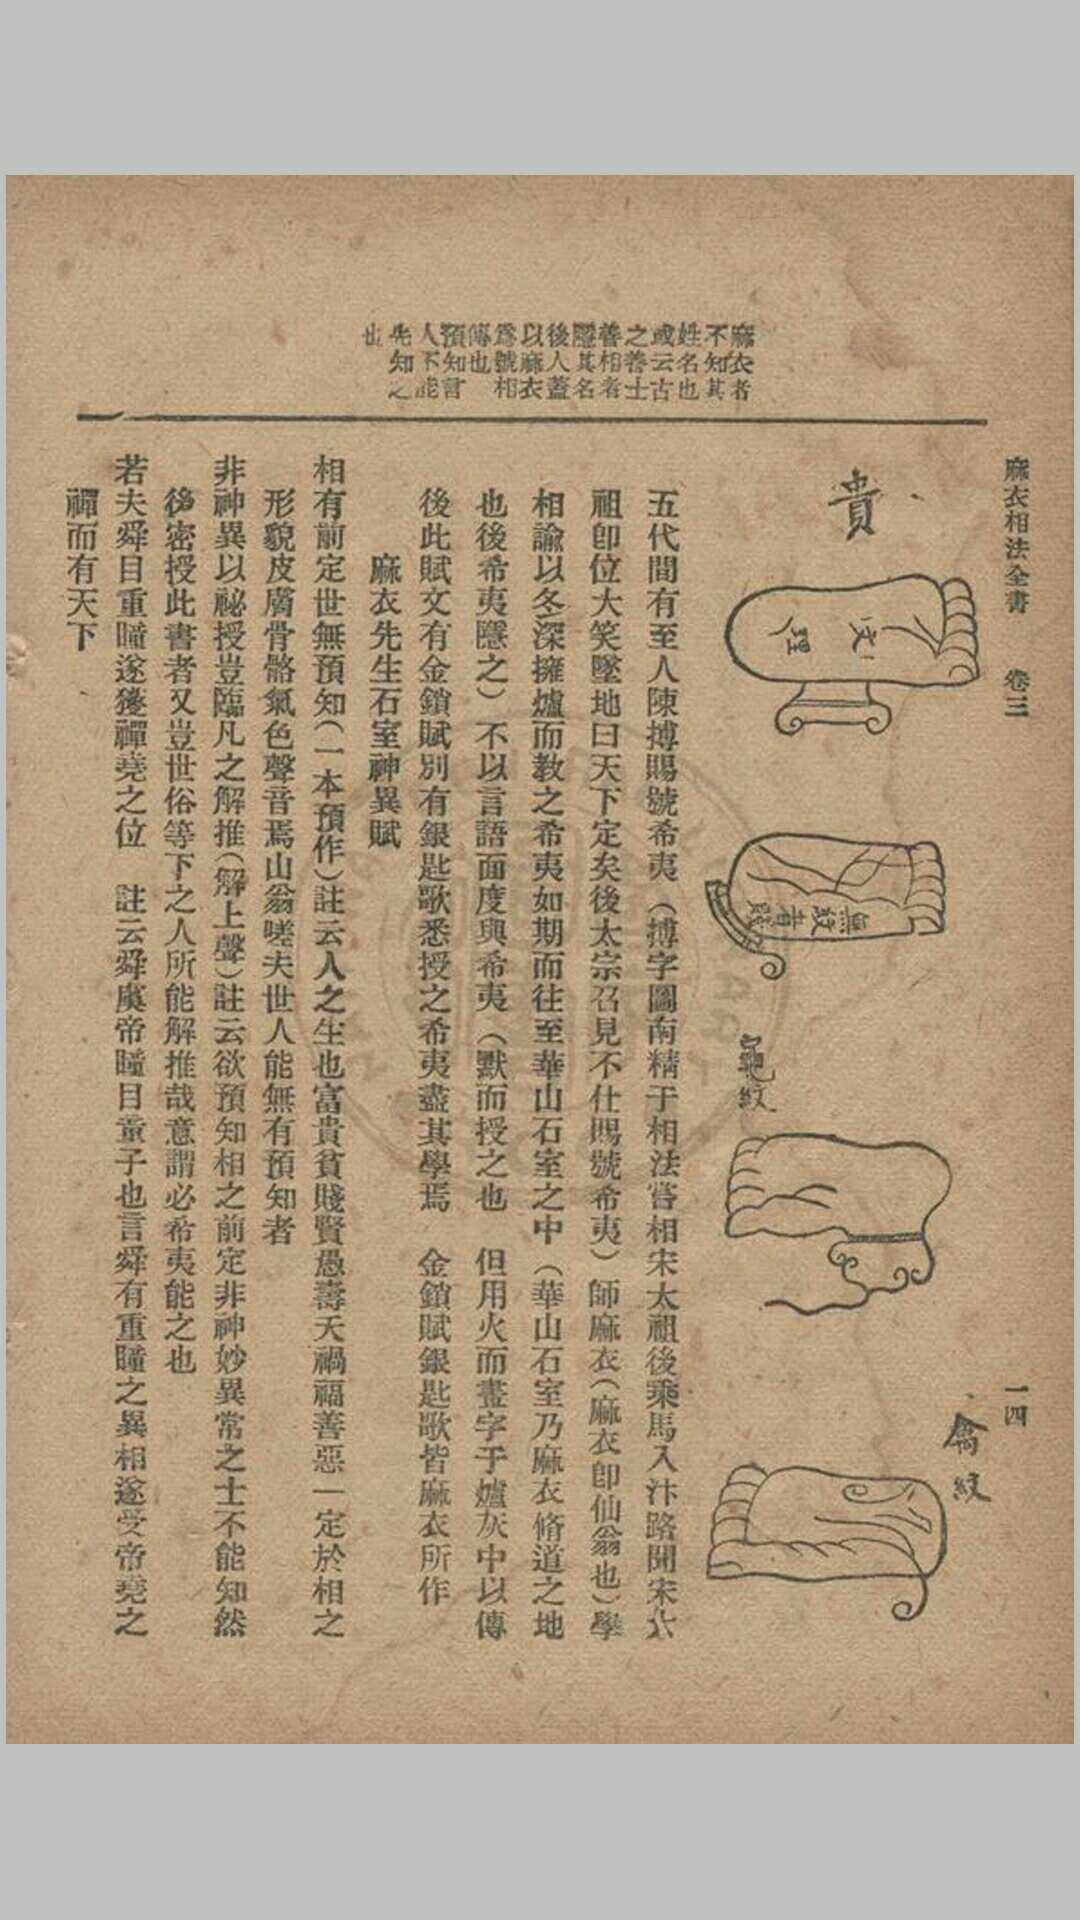 麻衣相法全書　卷三　一四
麻衣者
不知其
姓名也
或云古
之善士
善相者
隱其名
後人蓋
以麻衣
爲號相
傳也
預知言
人不能
先知之
也
貴
文理
無紋者賤
龜紋
禽紋
五代間有至人陳搏賜號希夷（搏字圖南精于相法嘗相宋太祖後乘馬入汴路聞宋太
祖卽位大笑墜地曰天下定矣後太宗召見不仕賜號希夷）師麻衣（麻衣卽仙翁也）學
相諭以冬深擁爐而教之希夷如期而往至華山石室之中（華山石室乃麻衣脩道之地
也後希夷隱之）不以言語面度與希夷（默而授之也　但用火而畫字于爐灰中以傳
後此賦文有金鎖賦別有銀匙歌悉授之希夷盡其學焉　金鎖賦銀匙歌皆麻衣所作
麻衣先生石室神異賦
相有前定世無預知（一本預作）註云人之生也富貴貧賤賢愚壽夭禍福善惡一定於相之
形貌皮膚骨骼氣色聲音焉山翁嗟夫世人能無有預知者
非神異以祕授豈臨凡之解推（解上聲）註云欲預知相之前定非神妙異常之士不能知然
後密授此書者又豈世俗等下之人所能解推哉意謂必希夷能之也
若夫舜目重瞳遂獲禪堯之位　註云舜虞帝瞳目童子也言舜有重瞳之異相遂受帝堯之
禪而有天下